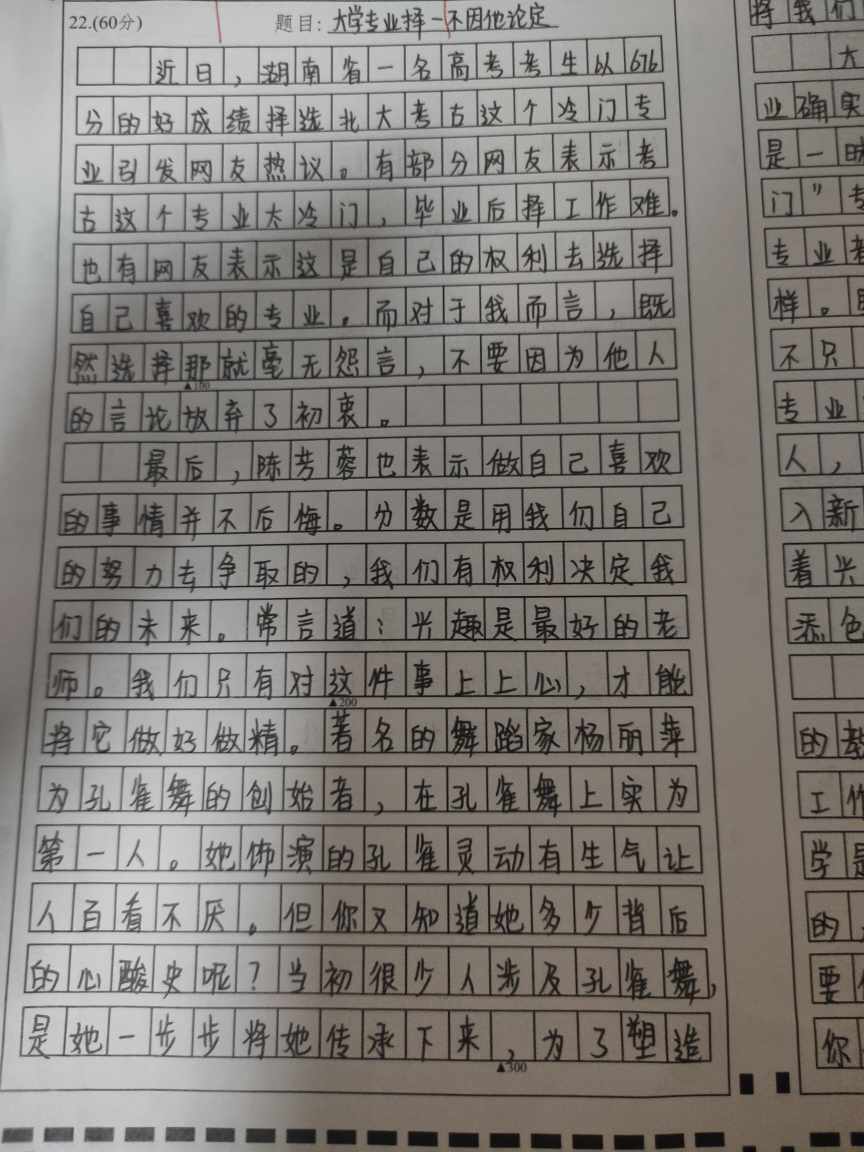 22.(60分) 题目: 大学专业择一不因他论定
近日,湖南省一名高考考生以676
分的好成绩择选北大考古这个冷门专
业引发网友热议。有部分网友表示考
古这个专业太冷门,毕业后择工作难。
也有网友表示这是自己的权利去选择
自己喜欢的专业。而对于我而言,既
然选择那就毫无怨言,不要因为他人
▲100
的言论放弃了初衷。
最后,陈芳蓉也表示做自己喜欢
的事情并不后悔。分数是用我们自己
的努力去争取的,我们有权利决定我
们的未来。常言道:兴趣是最好的老
师。我们只有对这件事上上心,才能
▲200
将它做好做精。著名的舞蹈家杨丽萍
为孔雀舞的创始者,在孔雀舞上实为
第一人。她饰演的孔雀灵动有生气让
人百看不厌。但你又知道她多少背后
的心酸史呢?当初很少人涉及孔雀舞,
是她一步步将她传承下来,为了塑造
▲300
将我们
大
业确实
是一时
门”专
专业者
样。
不只
专业
人,
入新
着兴
添色
的教
工作
学是
的
要
你